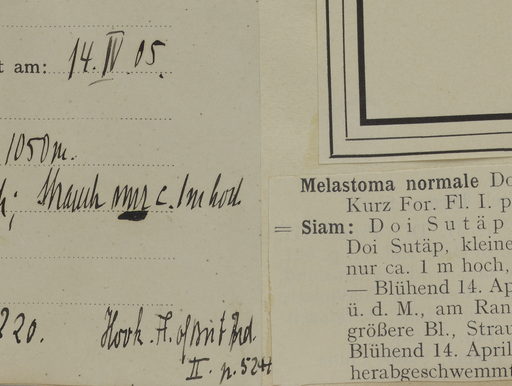 t am: 14. IV. 05.
1050m.
h; Strauch nur c. 1m hoch
220. Hook. Fl. of Brit Ind.
II. p. 524
Melastoma normale Do
Kurz For. Fl. I. p
= Siam: Doi Sutäp
Doi Sutäp, kleine
nur ca. 1 m hoch,
— Blühend 14. Ap
ü. d. M., am Ran
größere Bl., Strau
Blühend 14. April
herabgeschwemmt